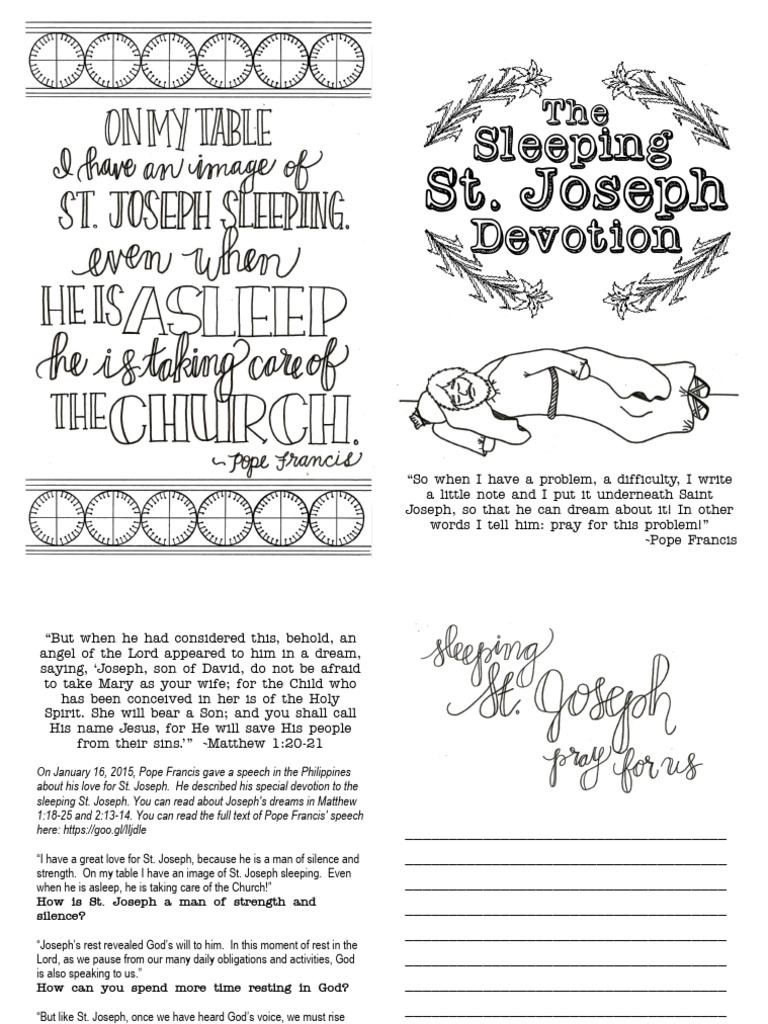 ON MY TABLE
I have an image of
ST. JOSEPH SLEEPING.
even when
HE IS ASLEEP
he is taking care of
THE CHURCH.
~Pope Francis
The
Sleeping
St. Joseph
Devotion
“So when I have a problem, a difficulty, I write
a little note and I put it underneath Saint
Joseph, so that he can dream about it! In other
words I tell him: pray for this problem!”
~Pope Francis
“But when he had considered this, behold, an
angel of the Lord appeared to him in a dream,
saying, ‘Joseph, son of David, do not be afraid
to take Mary as your wife; for the Child who
has been conceived in her is of the Holy
Spirit. She will bear a Son; and you shall call
His name Jesus, for He will save His people
from their sins.’” ~Matthew 1:20-21
On January 16, 2015, Pope Francis gave a speech in the Philippines
about his love for St. Joseph. He described his special devotion to the
sleeping St. Joseph. You can read about Joseph's dreams in Matthew
1:18-25 and 2:13-14. You can read the full text of Pope Francis' speech
here: https://goo.gl/lljdle
“I have a great love for St. Joseph, because he is a man of silence and
strength. On my table I have an image of St. Joseph sleeping. Even
when he is asleep, he is taking care of the Church!”
How is St. Joseph a man of strength and
silence?
“Joseph's rest revealed God's will to him. In this moment of rest in the
Lord, as we pause from our many daily obligations and activities, God
is also speaking to us.”
How can you spend more time resting in God?
“But like St. Joseph, once we have heard God's voice, we must rise
sleeping
St. Joseph
pray for us